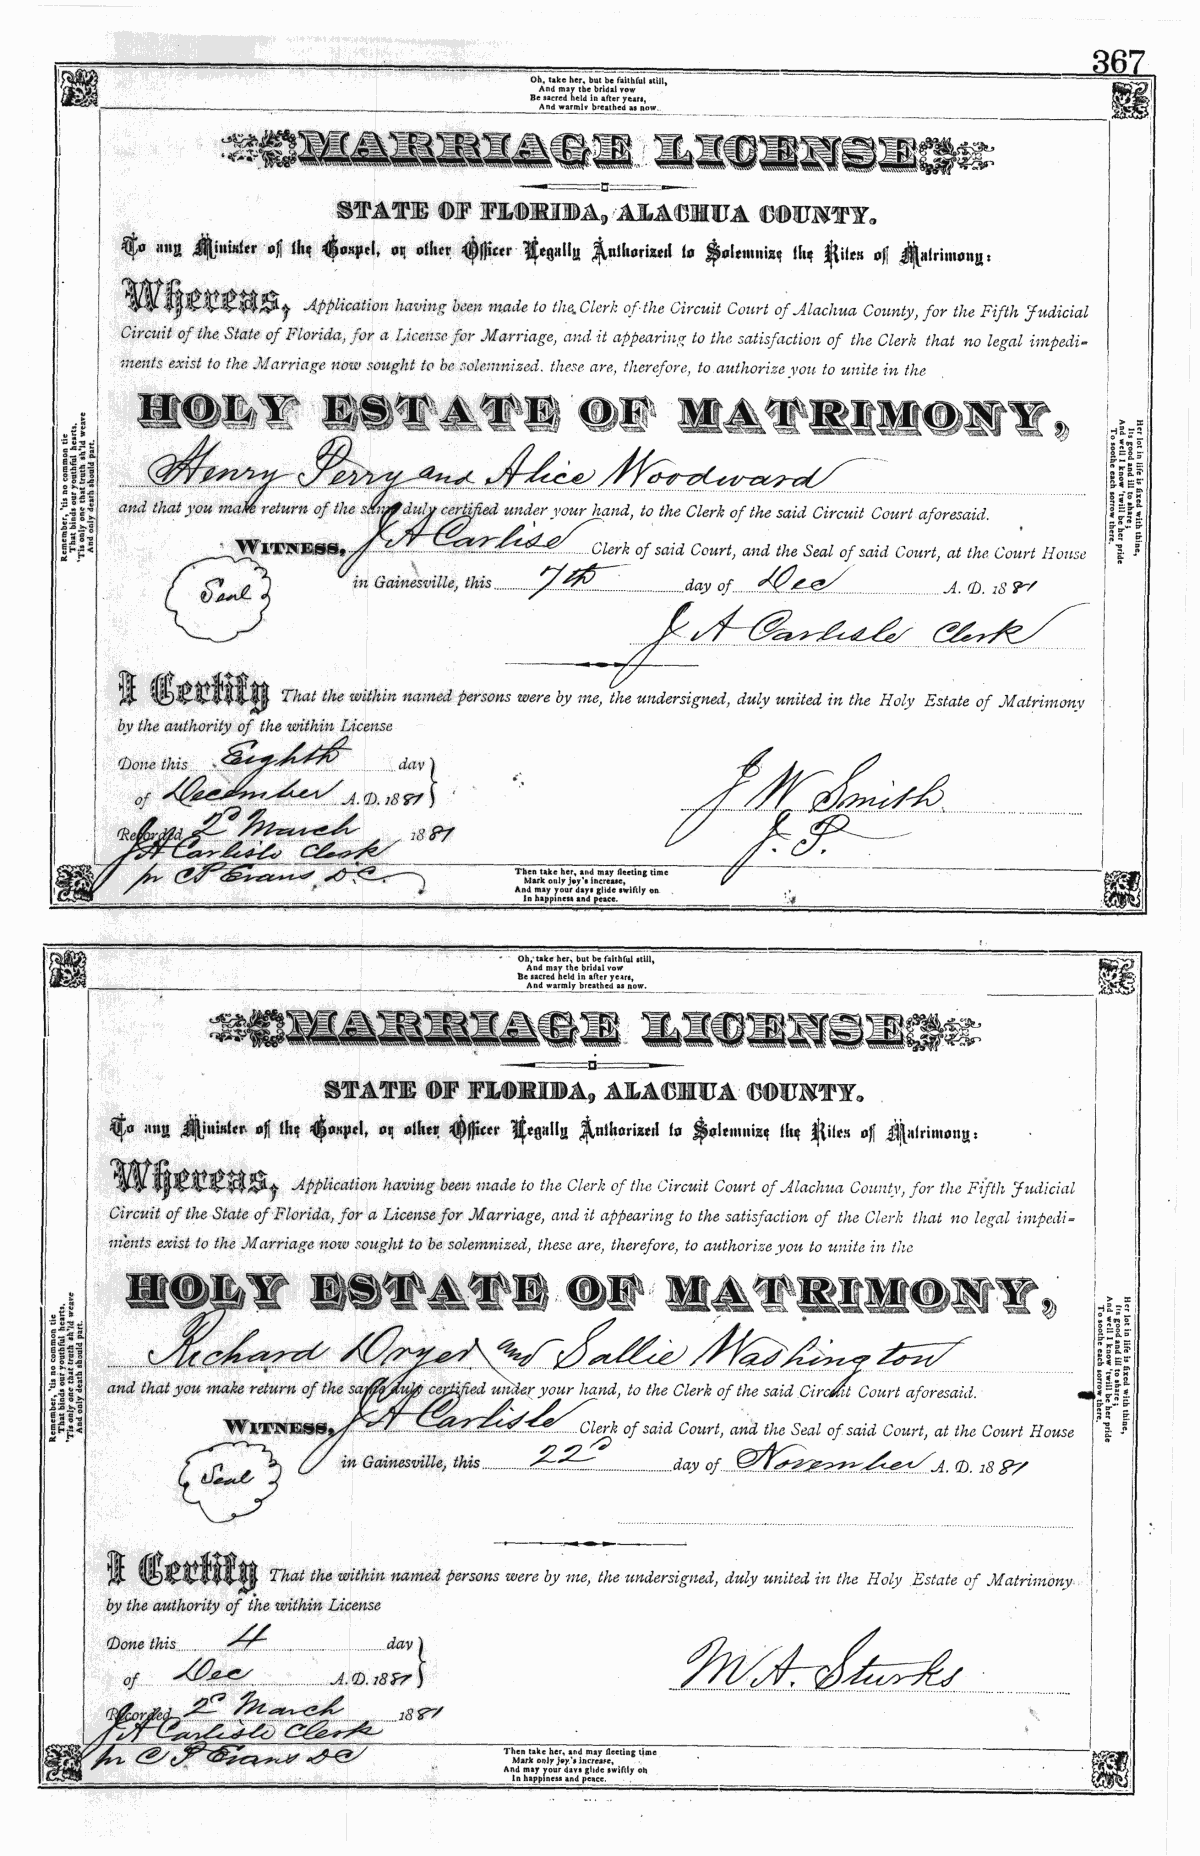 367
Oh, take her, but be faithful still,
And may the bridal vow
Be sacred held in after years,
And warmly breathed as now.
MARRIAGE LICENSE
STATE OF FLORIDA, ALACHUA COUNTY.
To any Minister of the Gospel, or other Officer Legally Authorized to Solemnize the Rites of Matrimony:
Whereas, Application having been made to the Clerk of the Circuit Court of Alachua County, for the Fifth Judicial
Circuit of the State of Florida, for a License for Marriage, and it appearing to the satisfaction of the Clerk that no legal impedi-
ments exist to the Marriage now sought to be solemnized. these are, therefore, to authorize you to unite in the
HOLY ESTATE OF MATRIMONY,
Henry Perry and Alice Woodward
and that you make return of the same duly certified under your hand, to the Clerk of the said Circuit Court aforesaid.
WITNESS, J A Carlise Clerk of said Court, and the Seal of said Court, at the Court House
Seal
in Gainesville, this 7th day of Dec A. D. 1881
J A Carlisle Clerk
I Certify That the within named persons were by me, the undersigned, duly united in the Holy Estate of Matrimony
by the authority of the within License
Done this Eighth day
of December A. D. 1881
J W Smith
J. P.
Recorded 2d March 1881
J A Carlisle Clerk
pr C P Evans D.C.
Remember, 'tis no common tie
That binds our youthful hearts,
'Tis only one that truth sh'ld weave
And only death should part.
Her lot in life is fixed with thine,
Its good and ill to share;
And well I know 'twill be her pride
To soothe each sorrow there.
Then take her, and may fleeting time
Mark only joy's increase,
And may your days glide swiftly on
In happiness and peace.
Oh, take her, but be faithful still,
And may the bridal vow
Be sacred held in after years,
And warmly breathed as now.
MARRIAGE LICENSE
STATE OF FLORIDA, ALACHUA COUNTY.
To any Minister of the Gospel, or other Officer Legally Authorized to Solemnize the Rites of Matrimony:
Whereas, Application having been made to the Clerk of the Circuit Court of Alachua County, for the Fifth Judicial
Circuit of the State of Florida, for a License for Marriage, and it appearing to the satisfaction of the Clerk that no legal impedi-
ments exist to the Marriage now sought to be solemnized, these are, therefore, to authorize you to unite in the
HOLY ESTATE OF MATRIMONY,
Richard Dryer and Sallie Washington
and that you make return of the same duly certified under your hand, to the Clerk of the said Circuit Court aforesaid.
WITNESS, J A Carlisle Clerk of said Court, and the Seal of said Court, at the Court House
Seal
in Gainesville, this 22d day of November A. D. 1881
I Certify That the within named persons were by me, the undersigned, duly united in the Holy Estate of Matrimony
by the authority of the within License
Done this 4 day
of Dec A. D. 1881
M A. Sturks
Recorded 2d March 1881
J A Carlisle Clerk
pr C P Evans DC
Remember, 'tis no common tie
That binds our youthful hearts,
'Tis only one that truth sh'ld weave
And only death should part.
Her lot in life is fixed with thine,
Its good and ill to share;
And well I know 'twill be her pride
To soothe each sorrow there.
Then take her, and may fleeting time
Mark only joy's increase,
And may your days glide swiftly on
In happiness and peace.